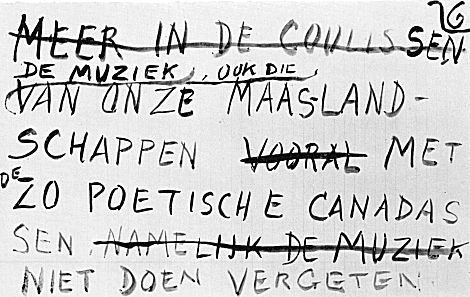 26
MEER IN DE COULISSEN
DE MUZIEK, OOK DIE,
(VAN ONZE MAAS-LAND-
SCHAPPEN VOORAL MET
DE
ZO POETISCHE CANADAS
SEN NAMELIJK DE MUZIEK
NIET DOEN VERGETEN.